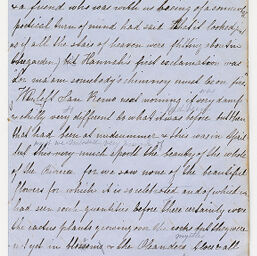 & a friend who was with us being of a somewhat
poetical turn of mind had said that it looked
as if all the stars of heaven were flitting about in
the garden) but Hannah's first exclamation was
"Oh ma'am somebody's chimney must be on fire"
We left San Remo next morning if very damp
& chilly very different to what it was before but then
that had been at midsummer & this was in April
but this very much spoilt the beauty of the whole
of the Riviera for we saw none of the beautiful
flowers for which it is so celebrated and of which we
had seen such quantities before there certainly were
the cactus plants growing over the rocks but they were
not yet in blossom & the Oleanders close all